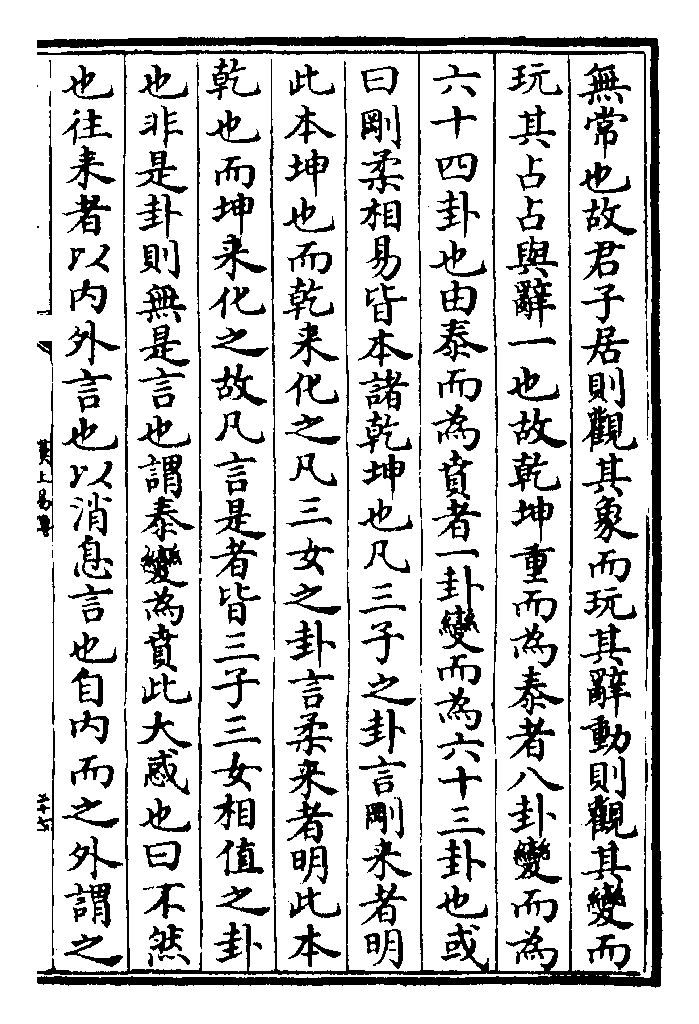 無常也故君子居則觀其象而玩其辭動則觀其變而
玩其占占與辭一也故乾坤重而為泰者八卦變而為
六十四卦也由泰而為賁者一卦變而為六十三卦也或
曰剛柔相易皆本諸乾坤也凡三子之卦言剛来者明
此本坤也而乾来化之凡三女之卦言柔来者明此本
乾也而坤来化之故凡言是者皆三子三女相值之卦
也非是卦則無是言也謂泰變為賁此大惑也曰不然
也往来者以内外言也以消息言也自内而之外謂之
上易
二十七